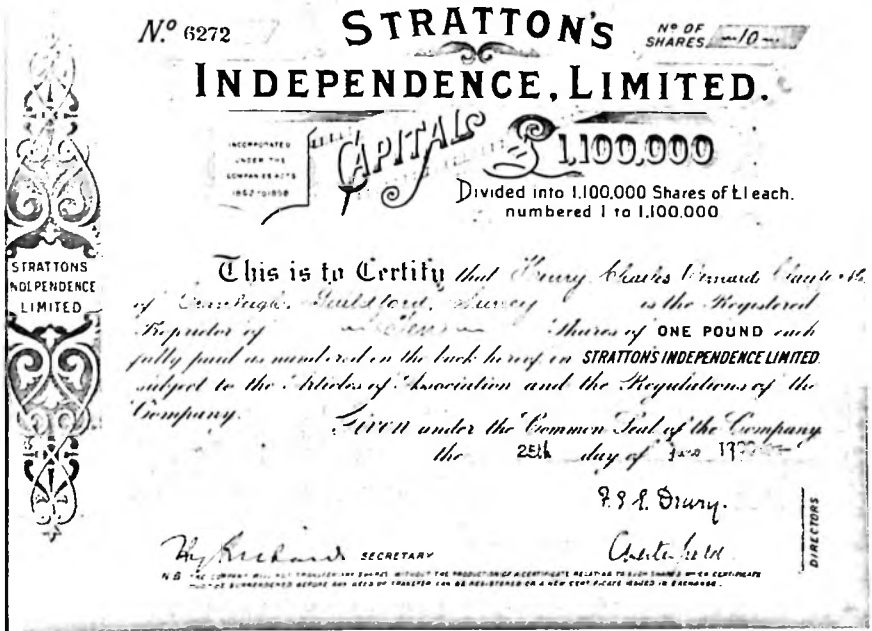 N.º 6272
STRATTON'S
Nº OF SHARES 10
INDEPENDENCE, LIMITED.
INCORPORATED
UNDER THE
COMPANIES ACTS
1862 TO 1898
CAPITAL £1,100,000
Divided into 1.100.000 Shares of £1 each.
numbered 1 to 1.100.000
STRATTONS
INDEPENDENCE
LIMITED
This is to Certify that Henry Charles
of Guildford, Surrey is the Registered
Proprietor of Shares of ONE POUND each
fully paid as numbered on the back hereof in STRATTONS INDEPENDENCE LIMITED.
subject to the Articles of Association and the Regulations of the
Company.
Given under the Common Seal of the Company
the 25th day of
Drury.
Chesterfield
DIRECTORS
SECRETARY
N.B. THE COMPANY WILL NOT TRANSFER ANY SHARES WITHOUT THE PRODUCTION OF A CERTIFICATE RELATING TO SUCH SHARES WHICH CERTIFICATE
MUST BE SURRENDERED BEFORE ANY DEED OF TRANSFER CAN BE REGISTERED OR A NEW CERTIFICATE ISSUED IN EXCHANGE.